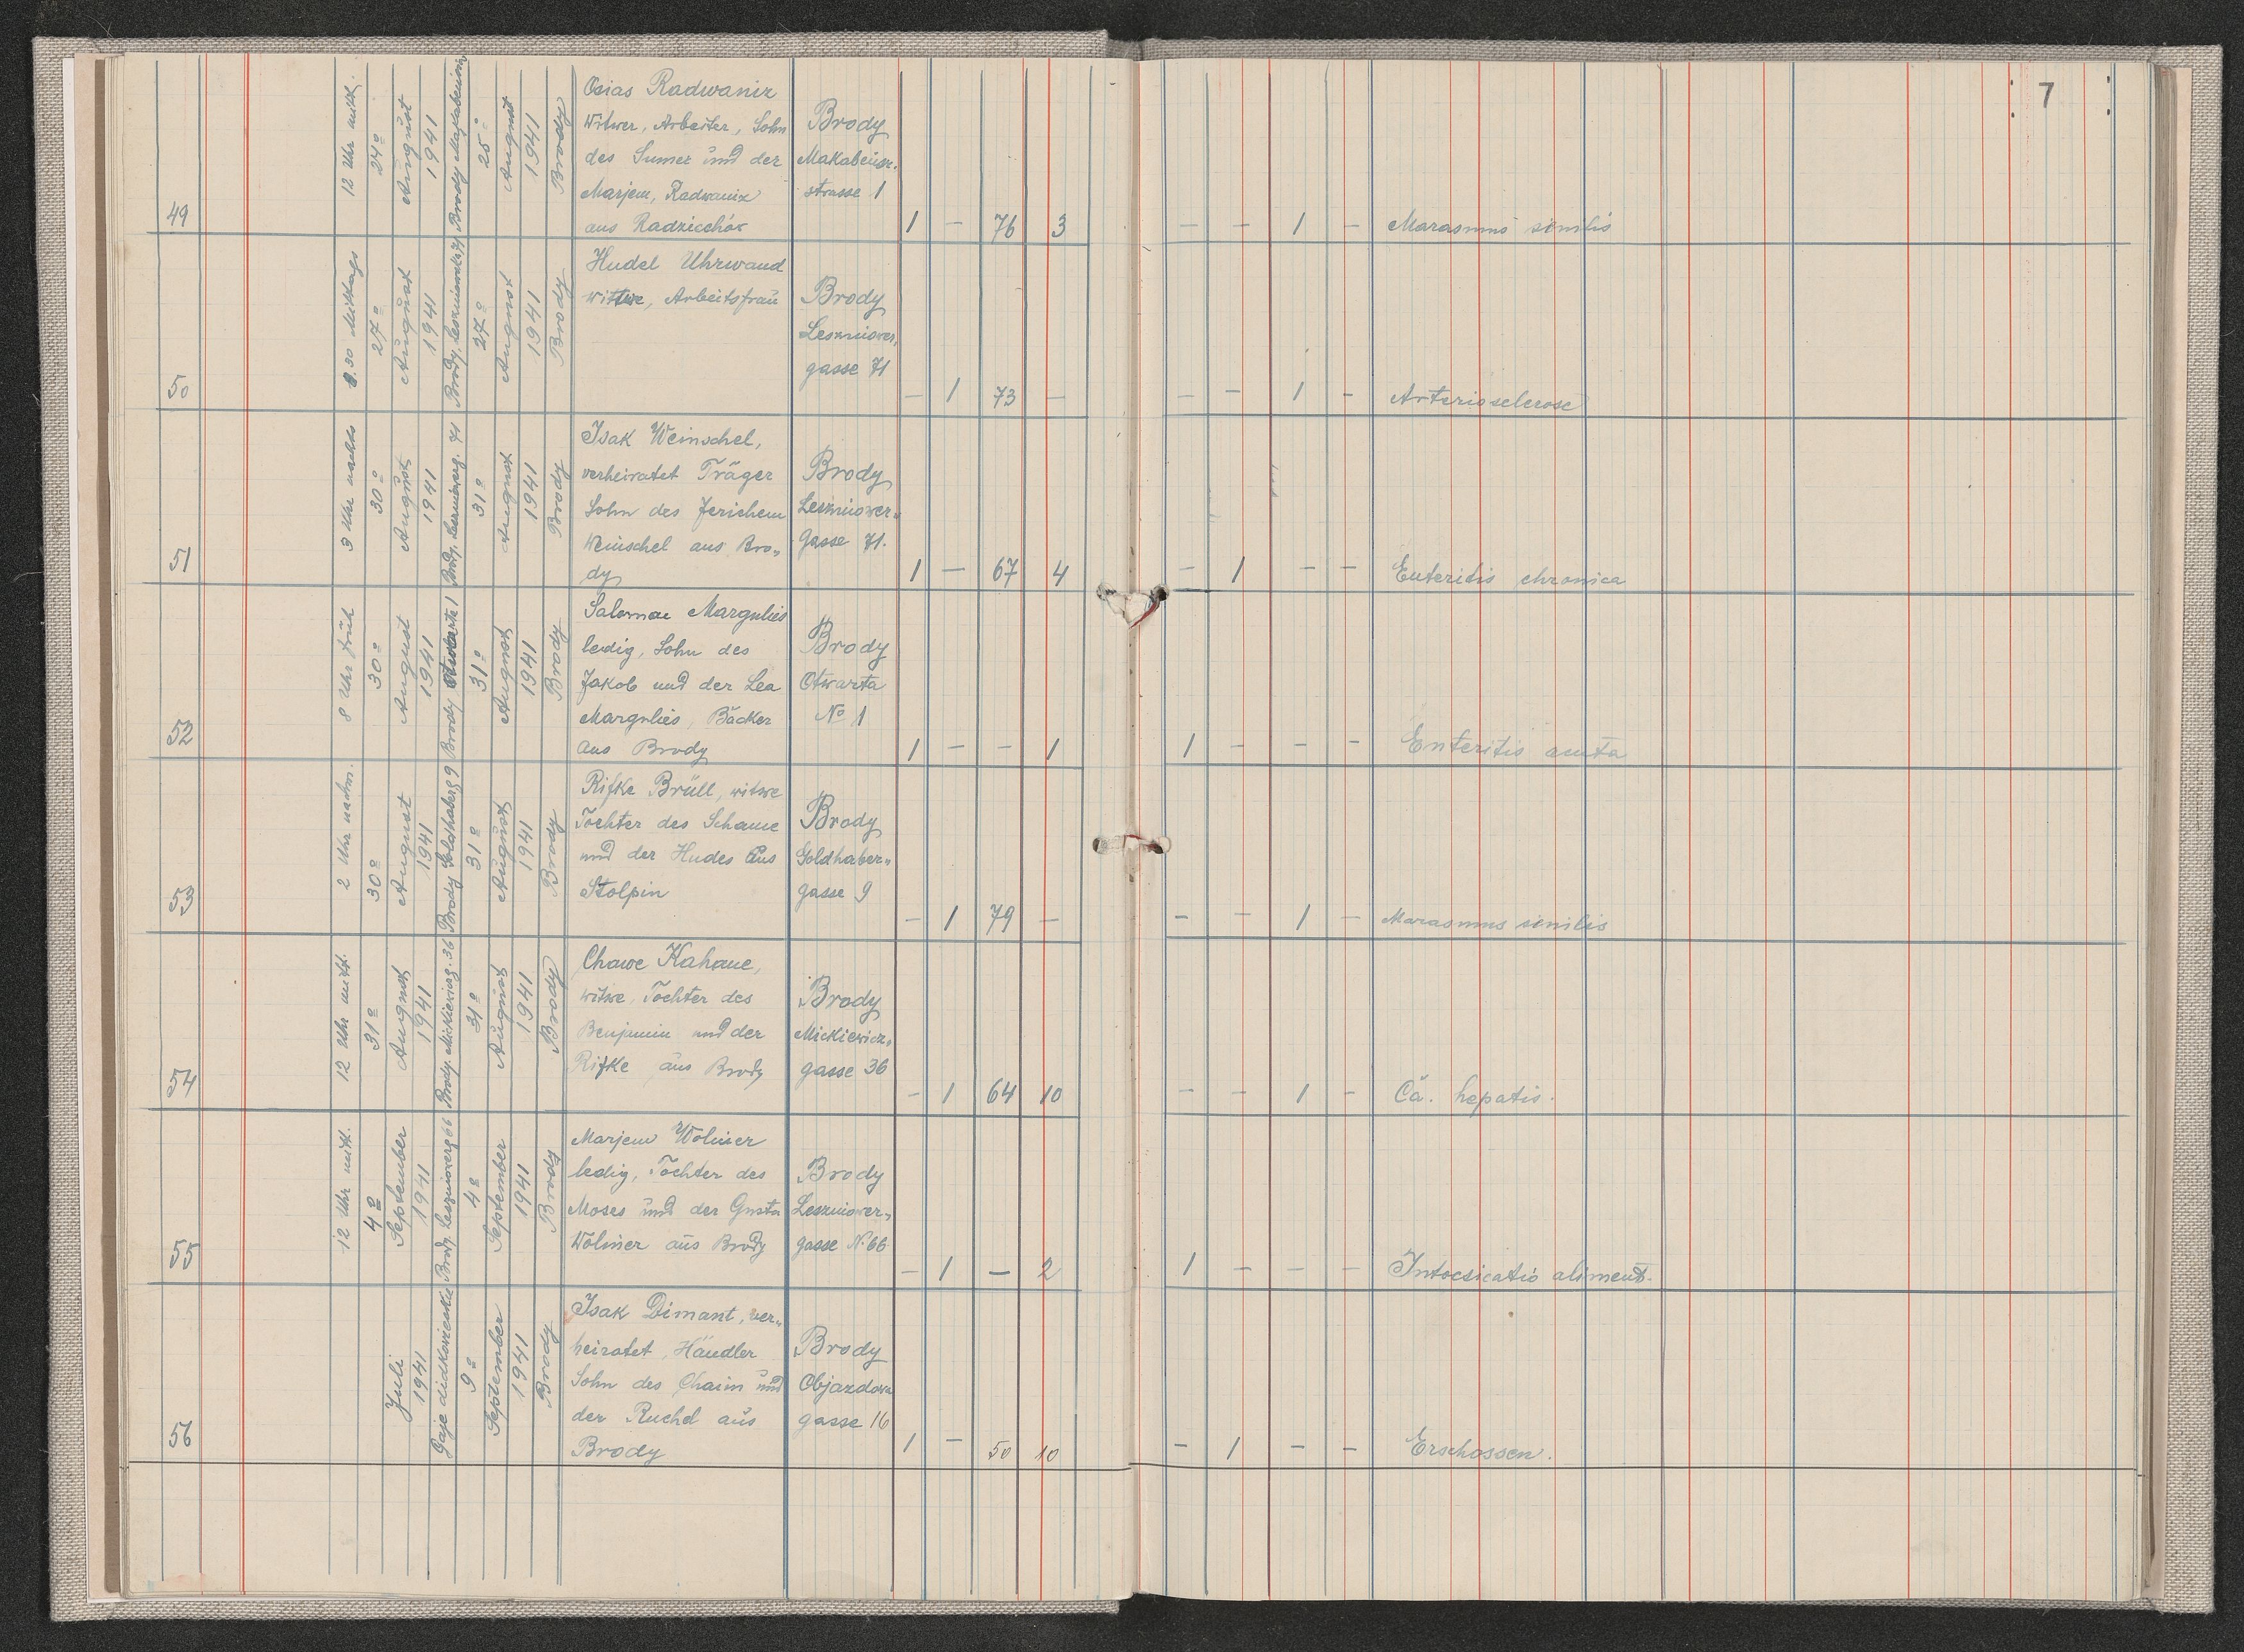 7
49
12 Uhr mitt.
24º
August
1941
Brody Makabeusza
25º
August
1941
Brody
Osias Radwaniz
Witwer, Arbeiter, Sohn
des Sumer und der
Marjem, Radwaniz
aus Radziechów
Brody
Makabeusz-
strasse 1
1 — 76 3
— — 1 —
Marasmus senilis
50
8.30 Mittags
27º
August
1941
Brody, Leszniowerg. 71
27º
August
1941
Brody
Hudel Uhrwand
Wittwe, Arbeitsfrau
Brody
Leszniower-
gasse 71
— 1 73 —
— — 1 —
Arteriosclerose
51
3 Uhr nachts
30º
August
1941
Brody, Leszniowerg. 71
31º
August
1941
Brody
Isak Weinschel,
verheiratet Träger
Sohn des Jerichem
Weinschel aus Bro„
dy
Brody
Leszniower„
gasse 71.
1 — 67 4
— 1 — —
Enteritis chronica
52
8 Uhr früh
30º
August
1941
Brody Otwarta 1
31º
August
1941
Brody
Salomon Margulies
ledig, Sohn des
Jakob und der Lea
Margulies, Bäcker
aus Brody
Brody
Otwarta
Nº 1
1 — — 1
1 — — —
Enteritis acuta
53
2 Uhr nachm.
30º
August
1941
Brody Goldhaberg 9
31º
August
1941
Brody
Rifke Brüll, witwe
Tochter des Schame
und der Hudes aus
Stolpin
Brody
Goldhaber„
gasse 9
— 1 79 —
— — 1 —
Marasmus senilis
54
12 Uhr mitt.
31º
August
1941
Brody. Mickiewiczg. 36
31º
August
1941
Brody
Chawe Kahane,
witwe, Tochter des
Benjamin und der
Rifke aus Brody
Brody
Mickiewicz„
gasse 36
— 1 64 10
— — 1 —
Ca. hepatis.
55
12 Uhr mitt.
4º
September
1941
Brody. Leszniowerg 66
4º
September
1941
Brody
Marjem Wolmer
ledig, Tochter des
Moses und der Gusta
Wolmer aus Brody
Brody
Leszniower„
gasse N. 66
— 1 — 2
1 — — —
Intocsicatio aliment.
56
Juli
1941
Gaje didkowieckie
9º
September
1941
Brody
Isak Dimant, ver„
heiratet, Händler
Sohn des Chaim und
der Ruchel aus
Brody
Brody
Objazdowa
gasse 16
1 — 50 10
— 1 — —
Erschossen.